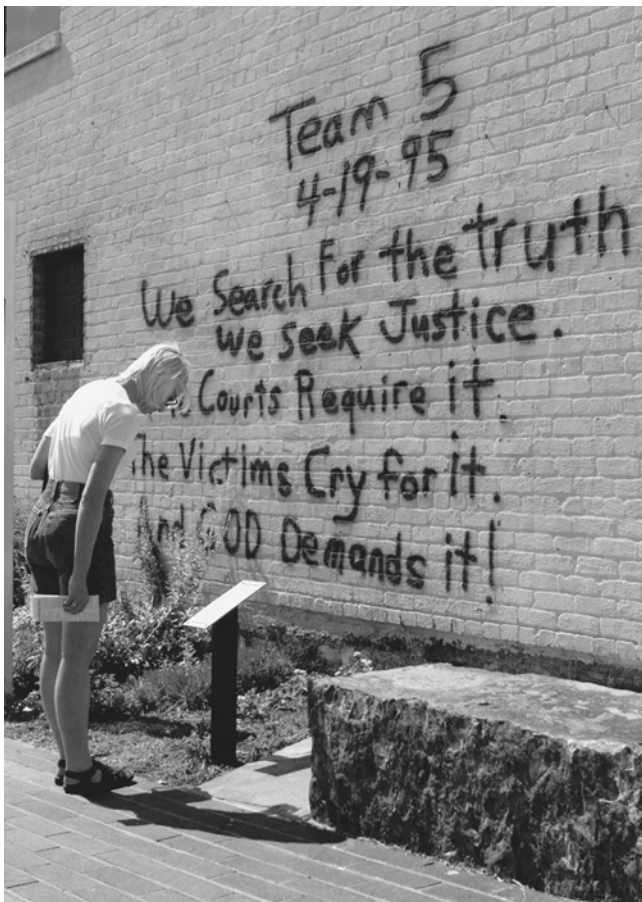 Team 5
4-19-95
We Search For the truth
We seek Justice.
Courts Require it.
The Victims Cry for it.
And GOD Demands it!